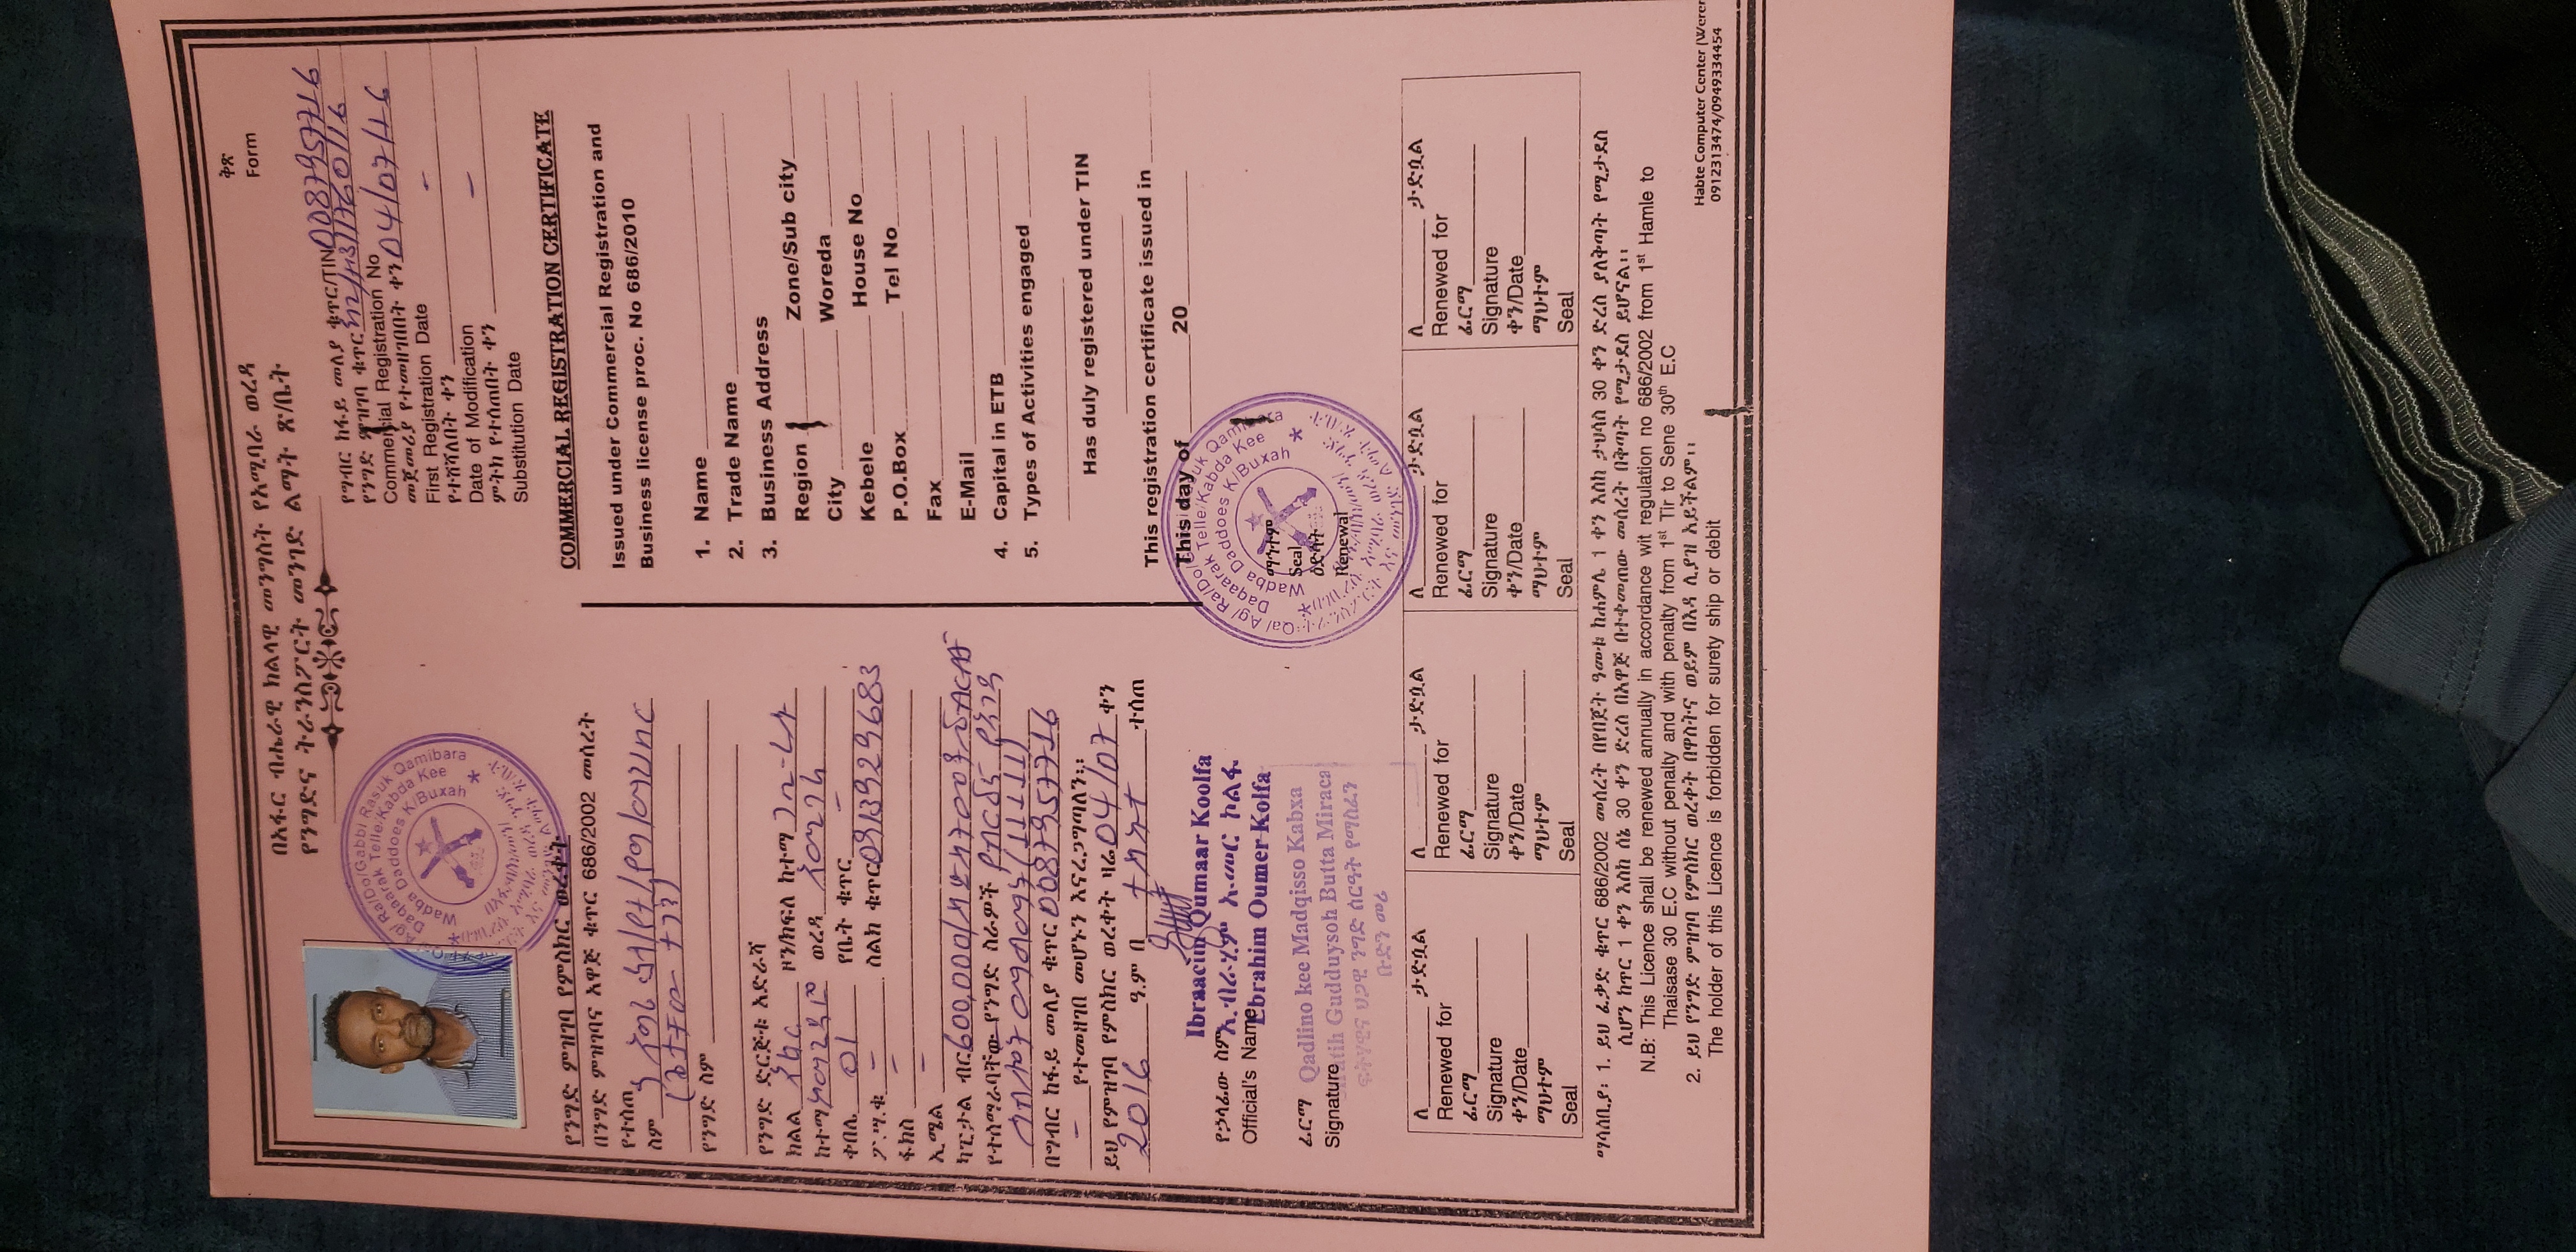 ቅጽ
Form
በአፋር ብሔራዊ ክልላዊ መንግስት የአሚባራ ወረዳ
የንግድና ትራንስፖርት መንገድ ልማት ጽ/ቤት
የግብር ከፋይ መለያ ቁጥር/TIN 0087957716
የንግድ ምዝገባ ቁጥር
Commercial Registration No
መጀመሪያ የተመዘገበበት ቀን 04/07/16
First Registration Date
የተሻሻለበት ቀን -
Date of Modification
ምትክ የተሰጠበት ቀን -
Substitution Date
Ag/ Ra/Do/Gabbi Rasuk Qamibara
Daqaarak Telle/Kabda Kee
Wadba Daddoes K/Buxah
የንግድ ምዝገባ የምስክር ወረቀት
በንግድ ምዝገባና አዋጅ ቁጥር 686/2002 መሰረት
የተሰጠ
ስም
የንግድ ስም
የንግድ ድርጅቱ አድራሻ
ክልል አፋር ዞን/ክፍለ ከተማ
ከተማ ወረዳ
ቀበሌ 01 የቤት ቁጥር -
ፖ.ሣ.ቁ - ስልክ ቁጥር 0913929683
ፋክስ -
ኢሜል -
ካፒታል ብር 600,000/
የተሰማራባቸው የንግድ ስራዎች
(11111)
በግብር ከፋይ መለያ ቁጥር 0087957716
- የተመዘገበ መሆኑን እናረጋግጣለን፡፡
ይህ የምዝገባ የምስክር ወረቀት ዛሬ 04/07 ቀን
2016 ዓ.ም በ ተሰጠ
Ibraacim Qumaar Koolfa
የኃላፊው ስም ኢብራሂም ኡመር ኮልፋ
Official's Name Ebrahim Oumer Kolfa
ፊርማ Qadlino kee Madqisso Kabxa
Signature Gudduysoh Butta Miraca
ፍትሃዊና ህጋዊ ንግድ ሰርዓት የማስፈን
ቡድን መሪ
COMMERCIAL REGISTRATION CERTIFICATE
Issued under Commercial Registration and
Business license proc. No 686/2010
1. Name
2. Trade Name
3. Business Address
Region Zone/Sub city
City Woreda
Kebele House No
P.O.Box Tel No
Fax
E-Mail
4. Capital in ETB
5. Types of Activities engaged
Has duly registered under TIN
This registration certificate issued in
This day of 20
Daqaarak Telle/Kabda Kee
Wadba Daddoes K/Buxah
ማኅተም
Seal
ዕድሳት
Renewal
ለ ታድሷል ለ ታድሷል ለ ታድሷል ለ ታድሷል
Renewed for Renewed for Renewed for Renewed for
ፊርማ ፊርማ ፊርማ ፊርማ
Signature Signature Signature Signature
ቀን/Date ቀን/Date ቀን/Date ቀን/Date
ማህተም ማህተም ማህተም ማህተም
Seal Seal Seal Seal
ማሳሰቢያ፡ 1. ይህ ፈቃድ ቁጥር 686/2002 መሰረት በየበጀት ዓመቱ ከሐምሌ 1 ቀን እስከ ታህሳስ 30 ቀን ድረስ ያለቅጣት የሚታደስ
ሲሆን ከጥር 1 ቀን እስከ ሰኔ 30 ቀን ድረስ በአዋጅ በተቀመጠው መሰረት በቅጣት የሚታደስ ይሆናል፡፡
N.B: This Licence shall be renewed annually in accordance wit regulation no 686/2002 from 1st Hamle to
Thaisase 30 E.C without penalty and with penalty from 1st Tir to Sene 30th E.C
2. ይህ የንግድ ምዝገባ የምስክር ወረቀት በዋስትና ወይም በእዳ ሊያዝ አይችልም፡፡
The holder of this Licence is forbidden for surety ship or debit
Habte Computer Center (Werer
0912313474/0949334454